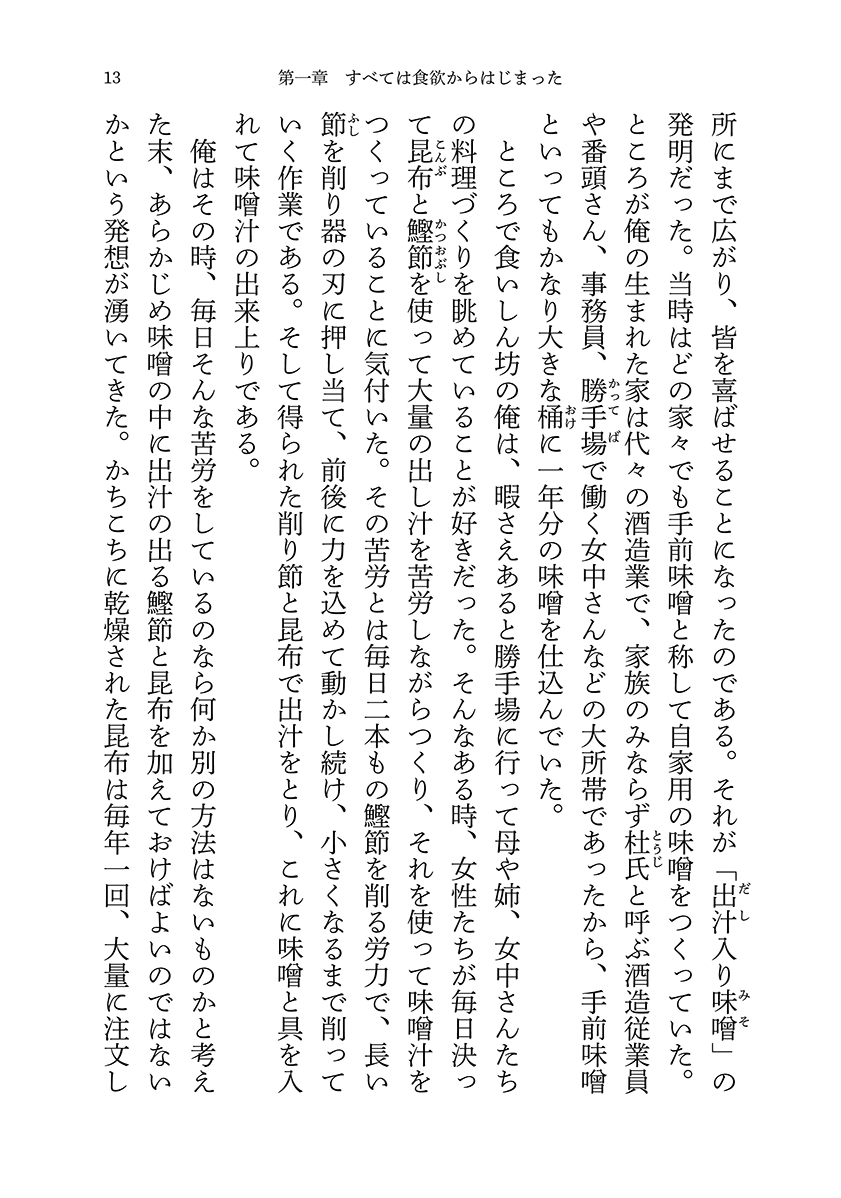 13
第一章　すべては食欲からはじまった
所にまで広がり、皆を喜ばせることになったのである。それが「出汁入り味噌」の
発明だった。当時はどの家々でも手前味噌と称して自家用の味噌をつくっていた。
ところが俺の生まれた家は代々の酒造業で、家族のみならず杜氏と呼ぶ酒造従業員
や番頭さん、事務員、勝手場で働く女中さんなどの大所帯であったから、手前味噌
といってもかなり大きな桶に一年分の味噌を仕込んでいた。
　ところで食いしん坊の俺は、暇さえあると勝手場に行って母や姉、女中さんたち
の料理づくりを眺めていることが好きだった。そんなある時、女性たちが毎日決っ
て昆布と鰹節を使って大量の出し汁を苦労しながらつくり、それを使って味噌汁を
つくっていることに気付いた。その苦労とは毎日二本もの鰹節を削る労力で、長い
節を削り器の刃に押し当て、前後に力を込めて動かし続け、小さくなるまで削って
いく作業である。そして得られた削り節と昆布で出汁をとり、これに味噌と具を入
れて味噌汁の出来上りである。
　俺はその時、毎日そんな苦労をしているのなら何か別の方法はないものかと考え
た末、あらかじめ味噌の中に出汁の出る鰹節と昆布を加えておけばよいのではない
かという発想が湧いてきた。かちこちに乾燥された昆布は毎年一回、大量に注文し